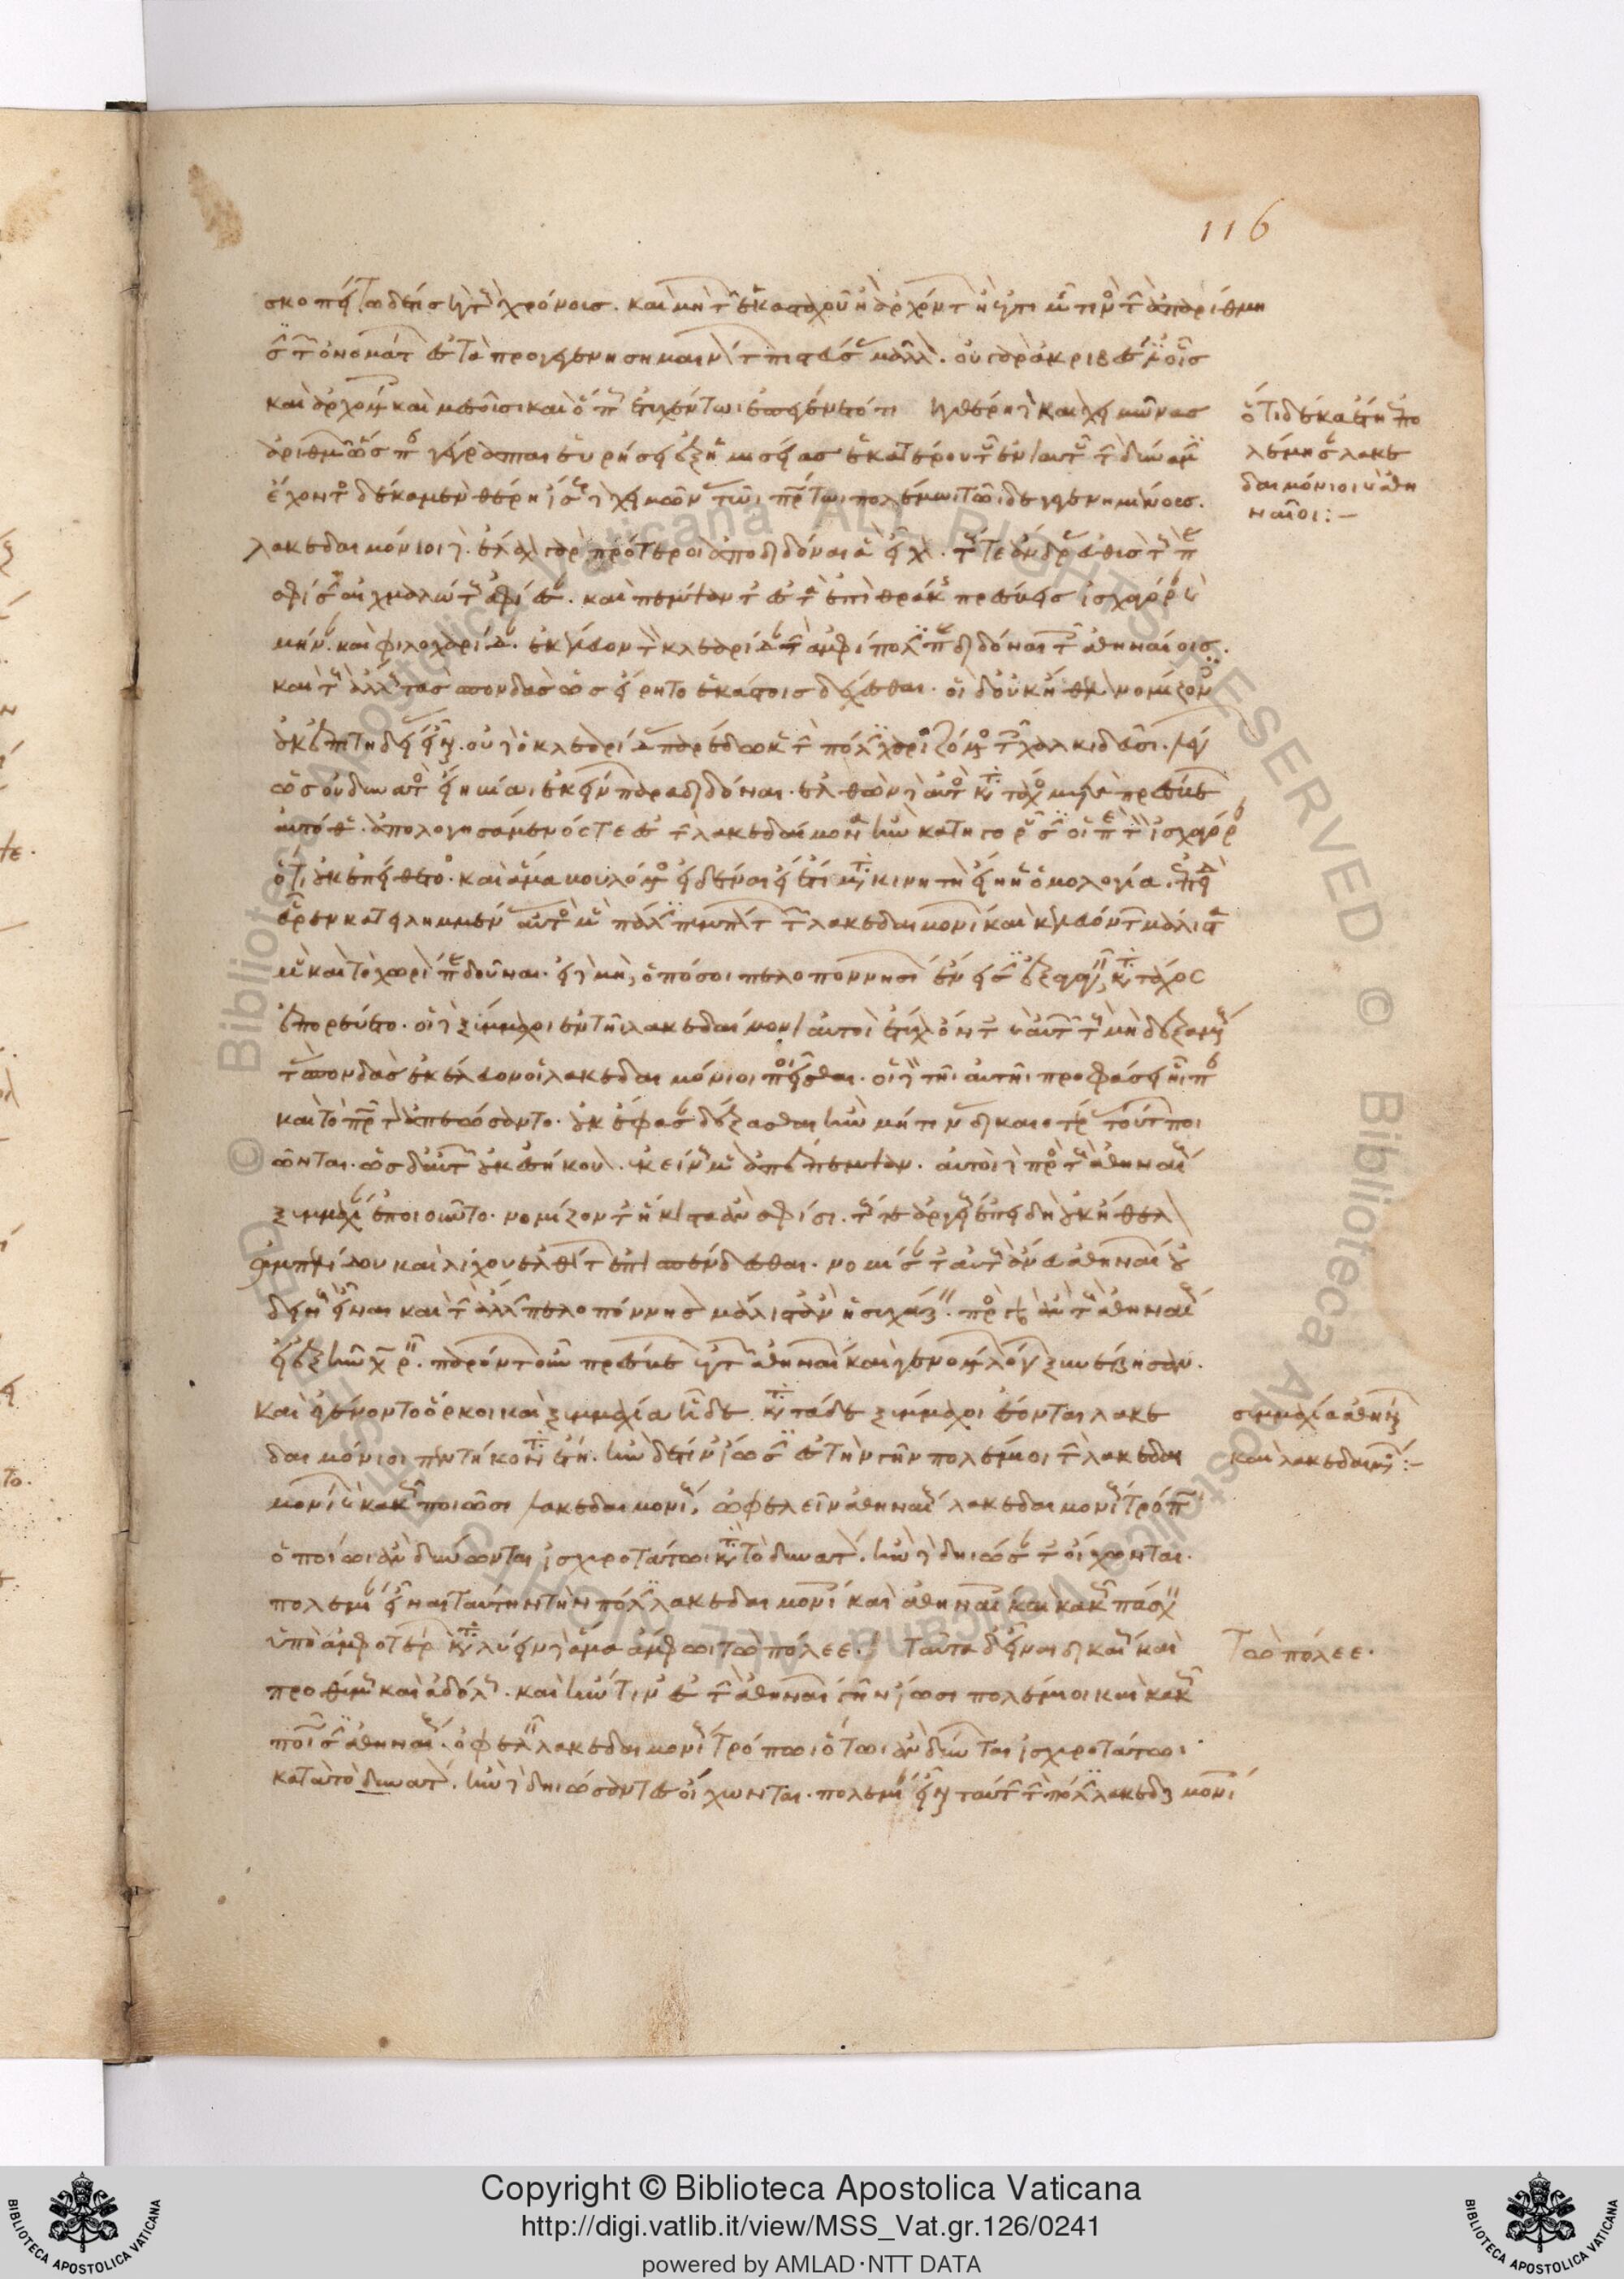 σκοπείτω δέ τις κατὰ τοὺς χρόνους. καὶ μὴ τῶν ἑκασταχοῦ ἢ ἀρχόντων ἢ ἀπὸ τιμῆς τινὸς τὴν ἀπαρίθμη
σιν τῶν ὀνομάτων ἐς τὰ προγεγενημένα σημαινόντων πιστεύσας μᾶλλον. οὐ γὰρ ἀκριβές ἐστιν οἷς
καὶ ἀρχομένοις καὶ μεσοῦσι καὶ ὅπως ἔτυχέν τωι ἐπεγένετό τι κατὰ θέρη δὲ καὶ χειμῶνας
ἀριθμῶν ὥσπερ γέγραπται εὑρήσει ἐξ ἡμισείας ἑκατέρου τοῦ ἐνιαυτοῦ τὴν δύναμιν
ἔχοντος δέκα μὲν θέρη ἴσους δὲ χειμῶνας τῶι πρώτωι πολέμωι τῶιδε γεγενημένους.
λακεδαιμόνιοι δὲ. ἔλαχον γὰρ πρότεροι ἀποδιδόναι ἃ εἶχον. τούς τε ἄνδρας εὐθὺς τοὺς παρὰ
σφίσιν αἰχμαλώτους ἀφίεσαν. καὶ πέμψαντες ἐς τὰ ἐπὶ θράκης πρέσβεις ἰσχαγόραν καὶ
μηνᾶν καὶ φιλοχαρίδαν. ἐκέλευον τὸν κλεαρίδαν τὴν ἀμφίπολιν παραδιδόναι τοῖς ἀθηναίοις.
καὶ τοὺς ἄλλους τὰς σπονδὰς ὡς εἴρητο ἑκάστοις δέχεσθαι. οἱ δ' οὐκ ἤθελον νομίζοντες
οὐκ ἐπιτηδείας εἶναι. οὐδὲ ὁ κλεαρίδας παρέδωκε τὴν πόλιν χαριζόμενος τοῖς χαλκιδεῦσι. λέγων
ὡς οὐ δυνατὸς εἴη βίαι ἐκείνων παραδιδόναι. ἐλθὼν δὲ αὐτὸς κατὰ τάχος μετὰ πρέσβεων
αὐτόθεν. ἀπολογησόμενός τε ἐς τὴν λακεδαίμονα ἢν κατηγορῶσιν οἱ περὶ τὸν ἰσχαγόραν
ὅτι οὐκ ἐπείθετο. καὶ ἅμα βουλόμενος εἰδέναι εἰ ἔτι μετακινητὴ εἴη ἡ ὁμολογία. ἐπειδὴ
εὗρεν κατειλημμένους αὐτὸς μὲν πάλιν πεμπόντων τῶν λακεδαιμονίων καὶ κελευόντων μάλιστα
μὲν καὶ τὸ χωρίον παραδοῦναι. εἰ δὲ μὴ, ὁπόσοι πελοποννησίων ἔνεισιν ἐξαγαγεῖν, κατὰ τάχος
ἐπορεύετο. οἱ δὲ ξύμμαχοι ἐν τῆι λακεδαίμονι αὐτοὶ ἔτυχον ὄντες καὶ αὐτῶν τοὺς μὴ δεξαμένους
τὰς σπονδὰς ἐκέλευον οἱ λακεδαιμόνιοι ποιεῖσθαι. οἱ δὲ τῆι αὐτῆι προφάσει ἧιπερ
καὶ τὸ πρῶτον ἀπεώσαντο. οὐκ ἔφασαν δέξασθαι ἢν μή τινας δικαιοτέρας τούτων ποι
ῶνται. ὡς δ' αὐτῶν οὐκ ἐσήκουον. ἐκείνους μὲν ἀπέπεμψαν. αὐτοὶ δὲ πρὸς τοὺς ἀθηναίους
ξυμμαχίαν ἐποιοῦντο. νομίζοντες ἥκιστα ἂν σφίσι. τούς τε ἀργείους ἐπειδὴ οὐκ ἤθελον
ἀμπελίδου καὶ λίχου ἐλθόντων ἐπισπένδεσθαι. νομίσαντες αὐτοὺς ἄνευ ἀθηναίων οὐ
δεινοὺς εἶναι καὶ τὴν ἄλλην πελοπόννησον μάλιστ' ἂν ἡσυχάζειν. πρὸς γὰρ ἂν τοὺς ἀθηναίους
εἰ ἐξῆν χωρεῖν. παρόντων οὖν πρέσβεων ἀπὸ τῶν ἀθηναίων καὶ γενομένων λόγων ξυνέβησαν.
Καὶ ἐγένοντο ὅρκοι καὶ ξυμμαχία ἥδε. κατὰ τάδε ξύμμαχοι ἔσονται λακε
δαιμόνιοι πεντήκοντα ἔτη. ἢν δέ τινες ἴωσιν ἐς τὴν γῆν πολέμιοι τῶν λακεδαι
μονίων καὶ κακῶς ποιῶσι λακεδαιμονίους, ὠφελεῖν ἀθηναίους λακεδαιμονίους τρόπωι
ὁποίωι ἂν δύνωνται ἰσχυροτάτωι κατὰ τὸ δυνατόν. ἢν δὲ δηιώσαντες οἴχωνται.
πολεμίαν εἶναι ταύτην τὴν πόλιν λακεδαιμονίοις καὶ ἀθηναίοις καὶ κακῶς πάσχειν
ὑπὸ ἀμφοτέρων καταλύειν δὲ ἅμα ἄμφωι τὼ πόλεε. Ταῦτα δ' εἶναι δικαίως καὶ
προθύμως καὶ ἀδόλως. καὶ ἤν τινες ἐς τὴν ἀθηναίων γῆν ἴωσι πολέμιοι καὶ κακῶς
ποιῶσιν ἀθηναίους. ὠφελεῖν λακεδαιμονίους τρόπωι ὅτωι ἂν δύνωνται ἰσχυροτάτωι
κατὰ τὸ δυνατόν. ἢν δὲ δηιώσαντες οἴχωνται. πολεμίαν εἶναι ταύτην τὴν πόλιν λακεδαιμονίοις
116
ὅτι δέκα ἔτη ἐπο
λέμησαν λακε
δαιμόνιοι καὶ ἀθη
ναῖοι:-
συμμαχία ἀθηναίων
καὶ λακεδαιμονίων:-
Τὼ πόλεε.
BIBLIOTECA APOSTOLICA VATICANA
Copyright © Biblioteca Apostolica Vaticana
http://digi.vatlib.it/view/MSS_Vat.gr.126/0241
powered by AMLAD·NTT DATA
BIBLIOTECA APOSTOLICA VATICANA